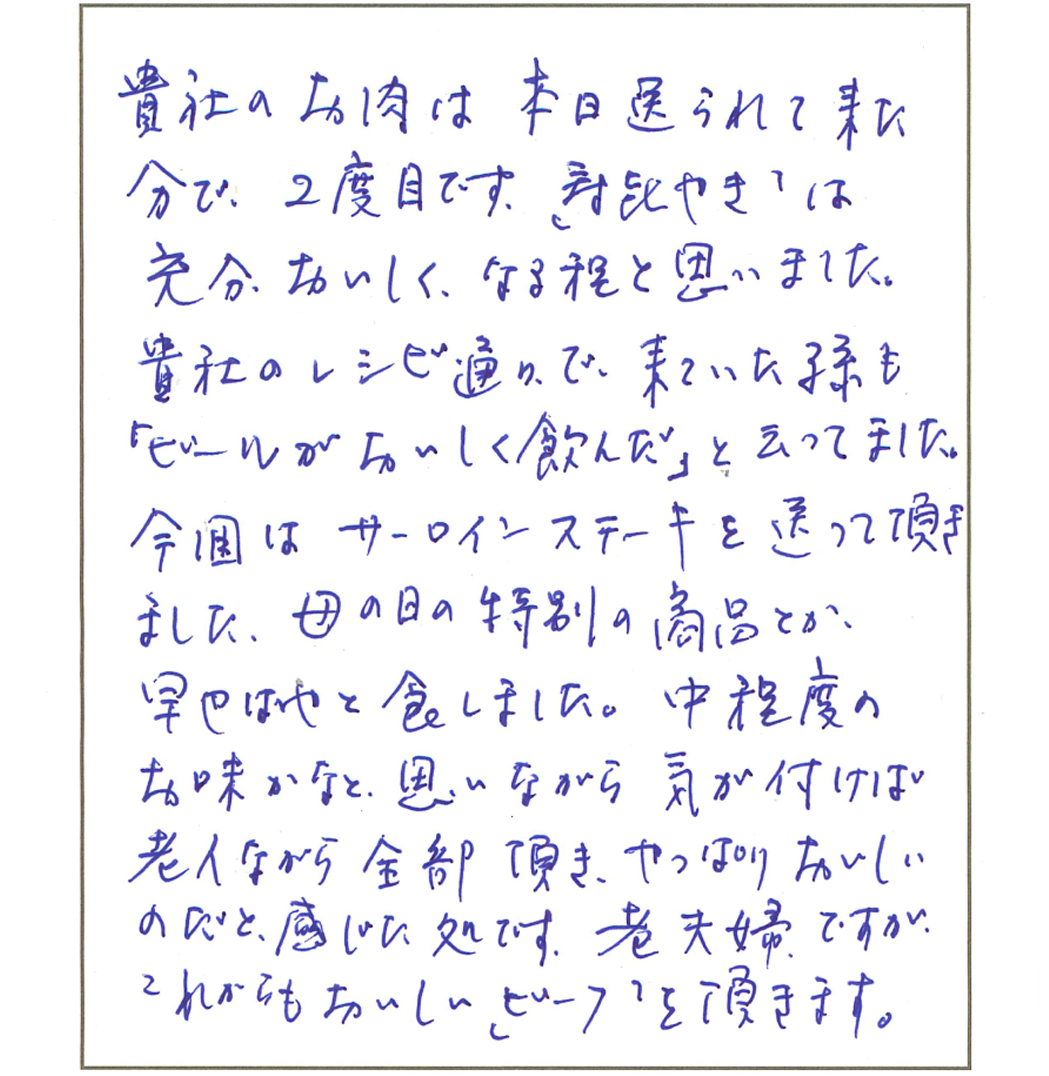 貴社のお肉は 本日送られて来た
分で、2度目です。「対比やき」は
充分、おいしく、なる程と思いました。
貴社のレシピ通りで、来ていた孫も
「ビールがおいしく飲んだ」と云ってました。
今週は サーロインステーキを送って頂き
ました、母の日の特別の商品とか、
早やばやと食しました。中程度の
お味かなと、思いながら 気が付けば
老人ながら 全部 頂き、やっぱり おいしい
のだと、感じた処です。老夫婦、ですが、
これからも おいしい「ビーフ」を頂きます。